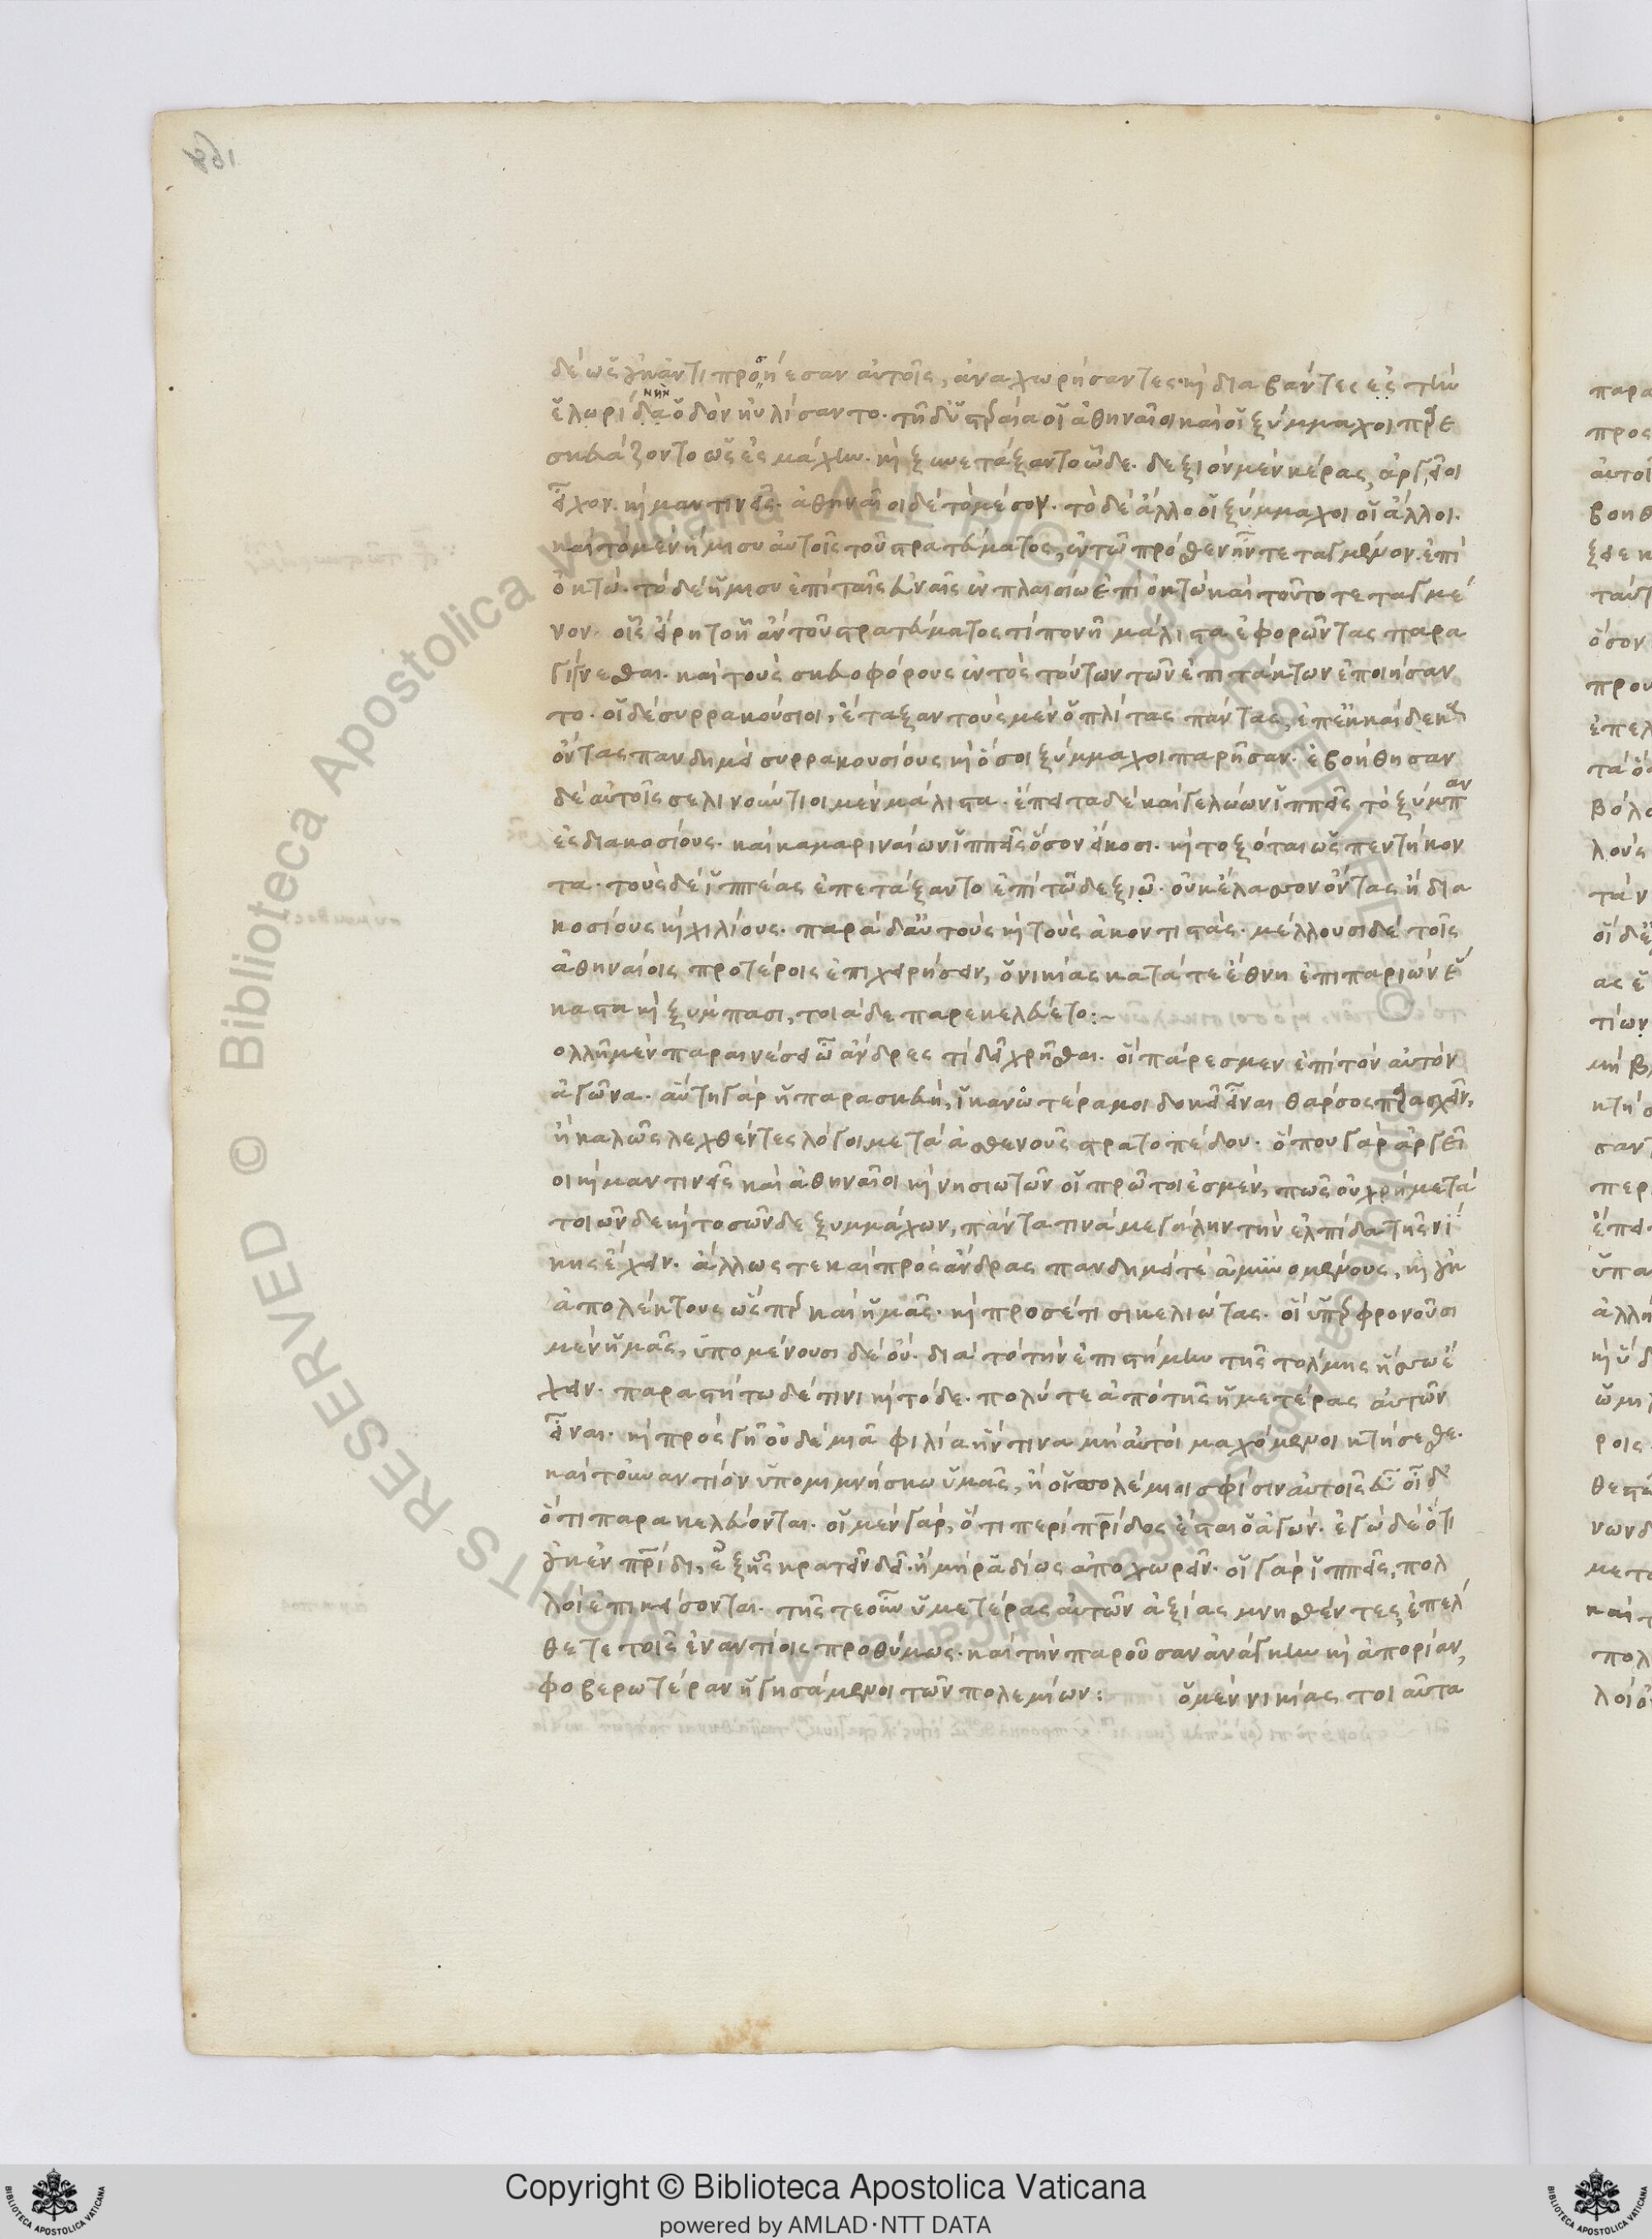 δὲ ὡς οὐκ ἀντιπροήεσαν αὐτοῖς, ἀναχωρήσαντες. καὶ διαβάντες ἐς τὴν
ἑλωρίδα ὁδὸν ηὐλίσαντο. τῆ δ' ὑστεραία οἱ ἀθηναῖοι καὶ οἱ ξύμμαχοι παρε
σκευάζοντο ὡς ἐς μάχην. καὶ ξυνετάξαντο ὧδε. δεξιὸν μὲν κέρας, ἀργεῖοι
εἶχον. καὶ μαντινεῖς. ἀθηναῖοι δὲ τὸ μέσον. τὸ δὲ ἄλλο οἱ ξύμμαχοι οἱ ἄλλοι.
καὶ τὸ μὲν ἥμισυ αὐτοῖς τοῦ στρατεύματος, ἐν τῶ πρόσθεν ἦν τεταγμένον. ἐπὶ
ὀκτώ. τὸ δὲ ἥμισυ ἐπὶ ταῖς εὐναῖς ἐν πλαισίω ἐπὶ ὀκτὼ καὶ τοῦτο τεταγμέ
νον. οἷς εἴρητο ἧ ἂν τοῦ στρατεύματός τι πονῆ μάλιστα ἐφορῶντας παρα
γίγνεσθαι. καὶ τοὺς σκευοφόρους ἐντὸς τούτων τῶν ἐπιτάκτων ἐποιήσαν
το. οἱ δὲ συρρακούσιοι, ἔταξαν τοὺς μὲν ὁπλίτας πάντας, ἐφ' ἑκκαίδεκα
ὄντας πανδημεὶ συρρακουσίους καὶ ὅσοι ξύμμαχοι παρῆσαν. ἐβοήθησαν
δὲ αὐτοῖς σελινούντιοι μὲν μάλιστα. ἔπειτα δὲ καὶ γελώων ἱππεῖς τὸ ξύμπαν
ἐς διακοσίους. καὶ καμαριναίων ἱππεῖς ὅσον εἴκοσι. καὶ τοξόται ὡς πεντήκον
τα. τοὺς δὲ ἱππέας ἐπετάξαντο ἐπὶ τῶ δεξιῶ. οὐκ ἔλασσον ὄντας ἢ δια
κοσίους καὶ χιλίους. παρὰ δ' αὐτοὺς καὶ τοὺς ἀκοντιστάς. μέλλουσι δὲ τοῖς
ἀθηναίοις προτέροις ἐπιχειρήσειν, ὁ νικίας κατά τε ἔθνη ἐπιπαριὼν ἕ
καστα καὶ ξύμπασι, τοιάδε παρεκελεύετο:~
ολλῆ μὲν παραινέσει ὦ ἄνδρες τί δεῖ χρῆσθαι. οἳ πάρεσμεν ἐπὶ τὸν αὐτὸν
ἀγῶνα. αὐτὴ γὰρ ἡ παρασκευὴ, ἱκανωτέρα μοι δοκεῖ εἶναι θάρσος παρασχεῖν,
ἢ καλῶς λεχθέντες λόγοι μετὰ ἀσθενοῦς στρατοπέδου. ὅπου γὰρ ἀργεῖ
οι καὶ μαντινεῖς καὶ ἀθηναῖοι καὶ νησιωτῶν οἱ πρῶτοι ἐσμὲν, πῶς οὐ χρὴ μετὰ
τοιῶνδε καὶ τοσῶνδε ξυμμάχων, πάντα τινὰ μεγάλην τὴν ἐλπίδα τῆς νί
κης ἔχειν. ἄλλως τε καὶ πρὸς ἄνδρας πανδημεί τε ἀμυνομένους, καὶ οὐκ
ἀπολέκτους ὥσπερ καὶ ἡμᾶς. καὶ προσέτι σικελιώτας. οἳ ὑπερφρονοῦσι
μὲν ἡμᾶς, ὑπομένουσι δὲ οὔ. διὰ τὸ τὴν ἐπιστήμην τῆς τόλμης ἥσσω ἔ
χειν. παραστήτω δέ τινι καὶ τόδε. πολύ τε ἀπὸ τῆς ἡμετέρας αὐτῶν
εἶναι. καὶ πρὸς γῆ οὐδεμιᾶ φιλία ἥντινα μὴ αὐτοὶ μαχόμενοι κτήσεσθε.
καὶ τοὐναντίον ὑπομιμνήσκω ὑμᾶς, ἢ οἱ πολέμιοι σφίσιν αὐτοῖς εὖ οἶδ'
ὅτι παρακελεύονται. οἱ μὲν γὰρ, ὅτι περὶ πατρίδος ἔσται ὁ ἀγών. ἐγὼ δὲ ὅτι
οὐκ ἐν πατρίδι, ἐξ ἧς κρατεῖν δεῖ. ἢ μὴ ῥαδίως ἀποχωρεῖν. οἱ γὰρ ἱππεῖς, πολ
λοὶ ἐπικείσονται. τῆς τε οὖν ὑμετέρας αὐτῶν ἀξίας μνησθέντες ἐπέλ
θετε τοῖς ἐναντίοις προθύμως. καὶ τὴν παροῦσαν ἀνάγκην καὶ ἀπορίαν,
φοβερωτέραν ἡγησάμενοι τῶν πολεμίων: ὁ μὲν νικίας τοιαῦτα
Copyright © Biblioteca Apostolica Vaticana
powered by AMLAD·NTT DATA